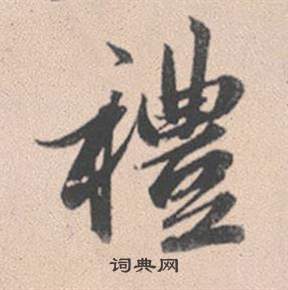 禮
词典网